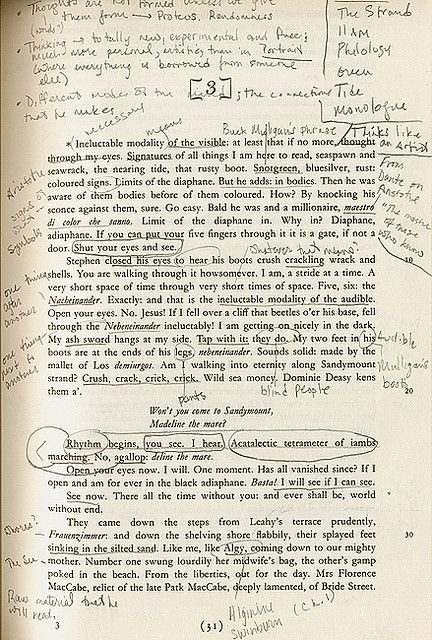 Thoughts are not formed unless we give
them form → Proteus. Randomness
(words)
Thinking → totally new, experimental and free;
much more personal, artistic, than in Portrait
(where everything is borrowed from someone
else)
Different modes of the
; the connections
that he makes
necessary
The Strand
11AM
Philology
Green
Tide
Monologue
[3]
means
Buck Mulligan's phrase
Thinks like
an Artist
* Ineluctable modality of the visible: at least that if no more, thought
through my eyes. Signatures of all things I am here to read, seaspawn and
seawrack, the nearing tide, that rusty boot. Snotgreen, bluesilver, rust:
coloured signs. Limits of the diaphane. But he adds: in bodies. Then he was
aware of them bodies before of them coloured. How? By knocking his
sconce against them, sure. Go easy. Bald he was and a millionaire, maestro
di color che sanno. Limit of the diaphane in. Why in? Diaphane,
adiaphane. If you can put your five fingers through it it is a gate, if not a
door. Shut your eyes and see.
Aristotle
signs
symbols
From
Dante on
Aristotle
"The master
of those
who know
whatever that means
Stephen closed his eyes to hear his boots crush crackling wrack and
10
shells. You are walking through it howsomever. I am, a stride at a time. A
very short space of time through very short times of space. Five, six: the
Nacheinander. Exactly: and that is the ineluctable modality of the audible.
Open your eyes. No. Jesus! If I fell over a cliff that beetles o'er his base, fell
through the Nebeneinander ineluctably! I am getting on nicely in the dark.
My ash sword hangs at my side. Tap with it: they do. My two feet in his
boots are at the ends of his legs, nebeneinander. Sounds solid: made by the
mallet of Los demiurgos. Am I walking into eternity along Sandymount
strand? Crush, crack, crick, crick. Wild sea money. Dominie Deasy kens
them a'.
20
one thing
after
another
one thing
next to
another
Audible
Mulligan's
boots
pants
blind people
Won't you come to Sandymount,
Madeline the mare?
Rhythm begins, you see. I hear. Acatalectic tetrameter of iambs
marching. No, agallop: deline the mare.
Open your eyes now. I will. One moment. Has all vanished since? If I
open and am for ever in the black adiaphane. Basta! I will see if I can see.
See now. There all the time without you: and ever shall be, world
without end.
They came down the steps from Leahy's terrace prudently,
Frauenzimmer: and down the shelving shore flabbily, their splayed feet
30
sinking in the silted sand. Like me, like Algy, coming down to our mighty
mother. Number one swung lourdily her midwife's bag, the other's gamp
poked in the beach. From the liberties, out for the day. Mrs Florence
MacCabe, relict of the late Park MacCabe, deeply lamented, of Bride Street.
whores?
The Sea
Raw material that he
will read
Algernon
Swinburn
(Ch. 1)
3
(31)